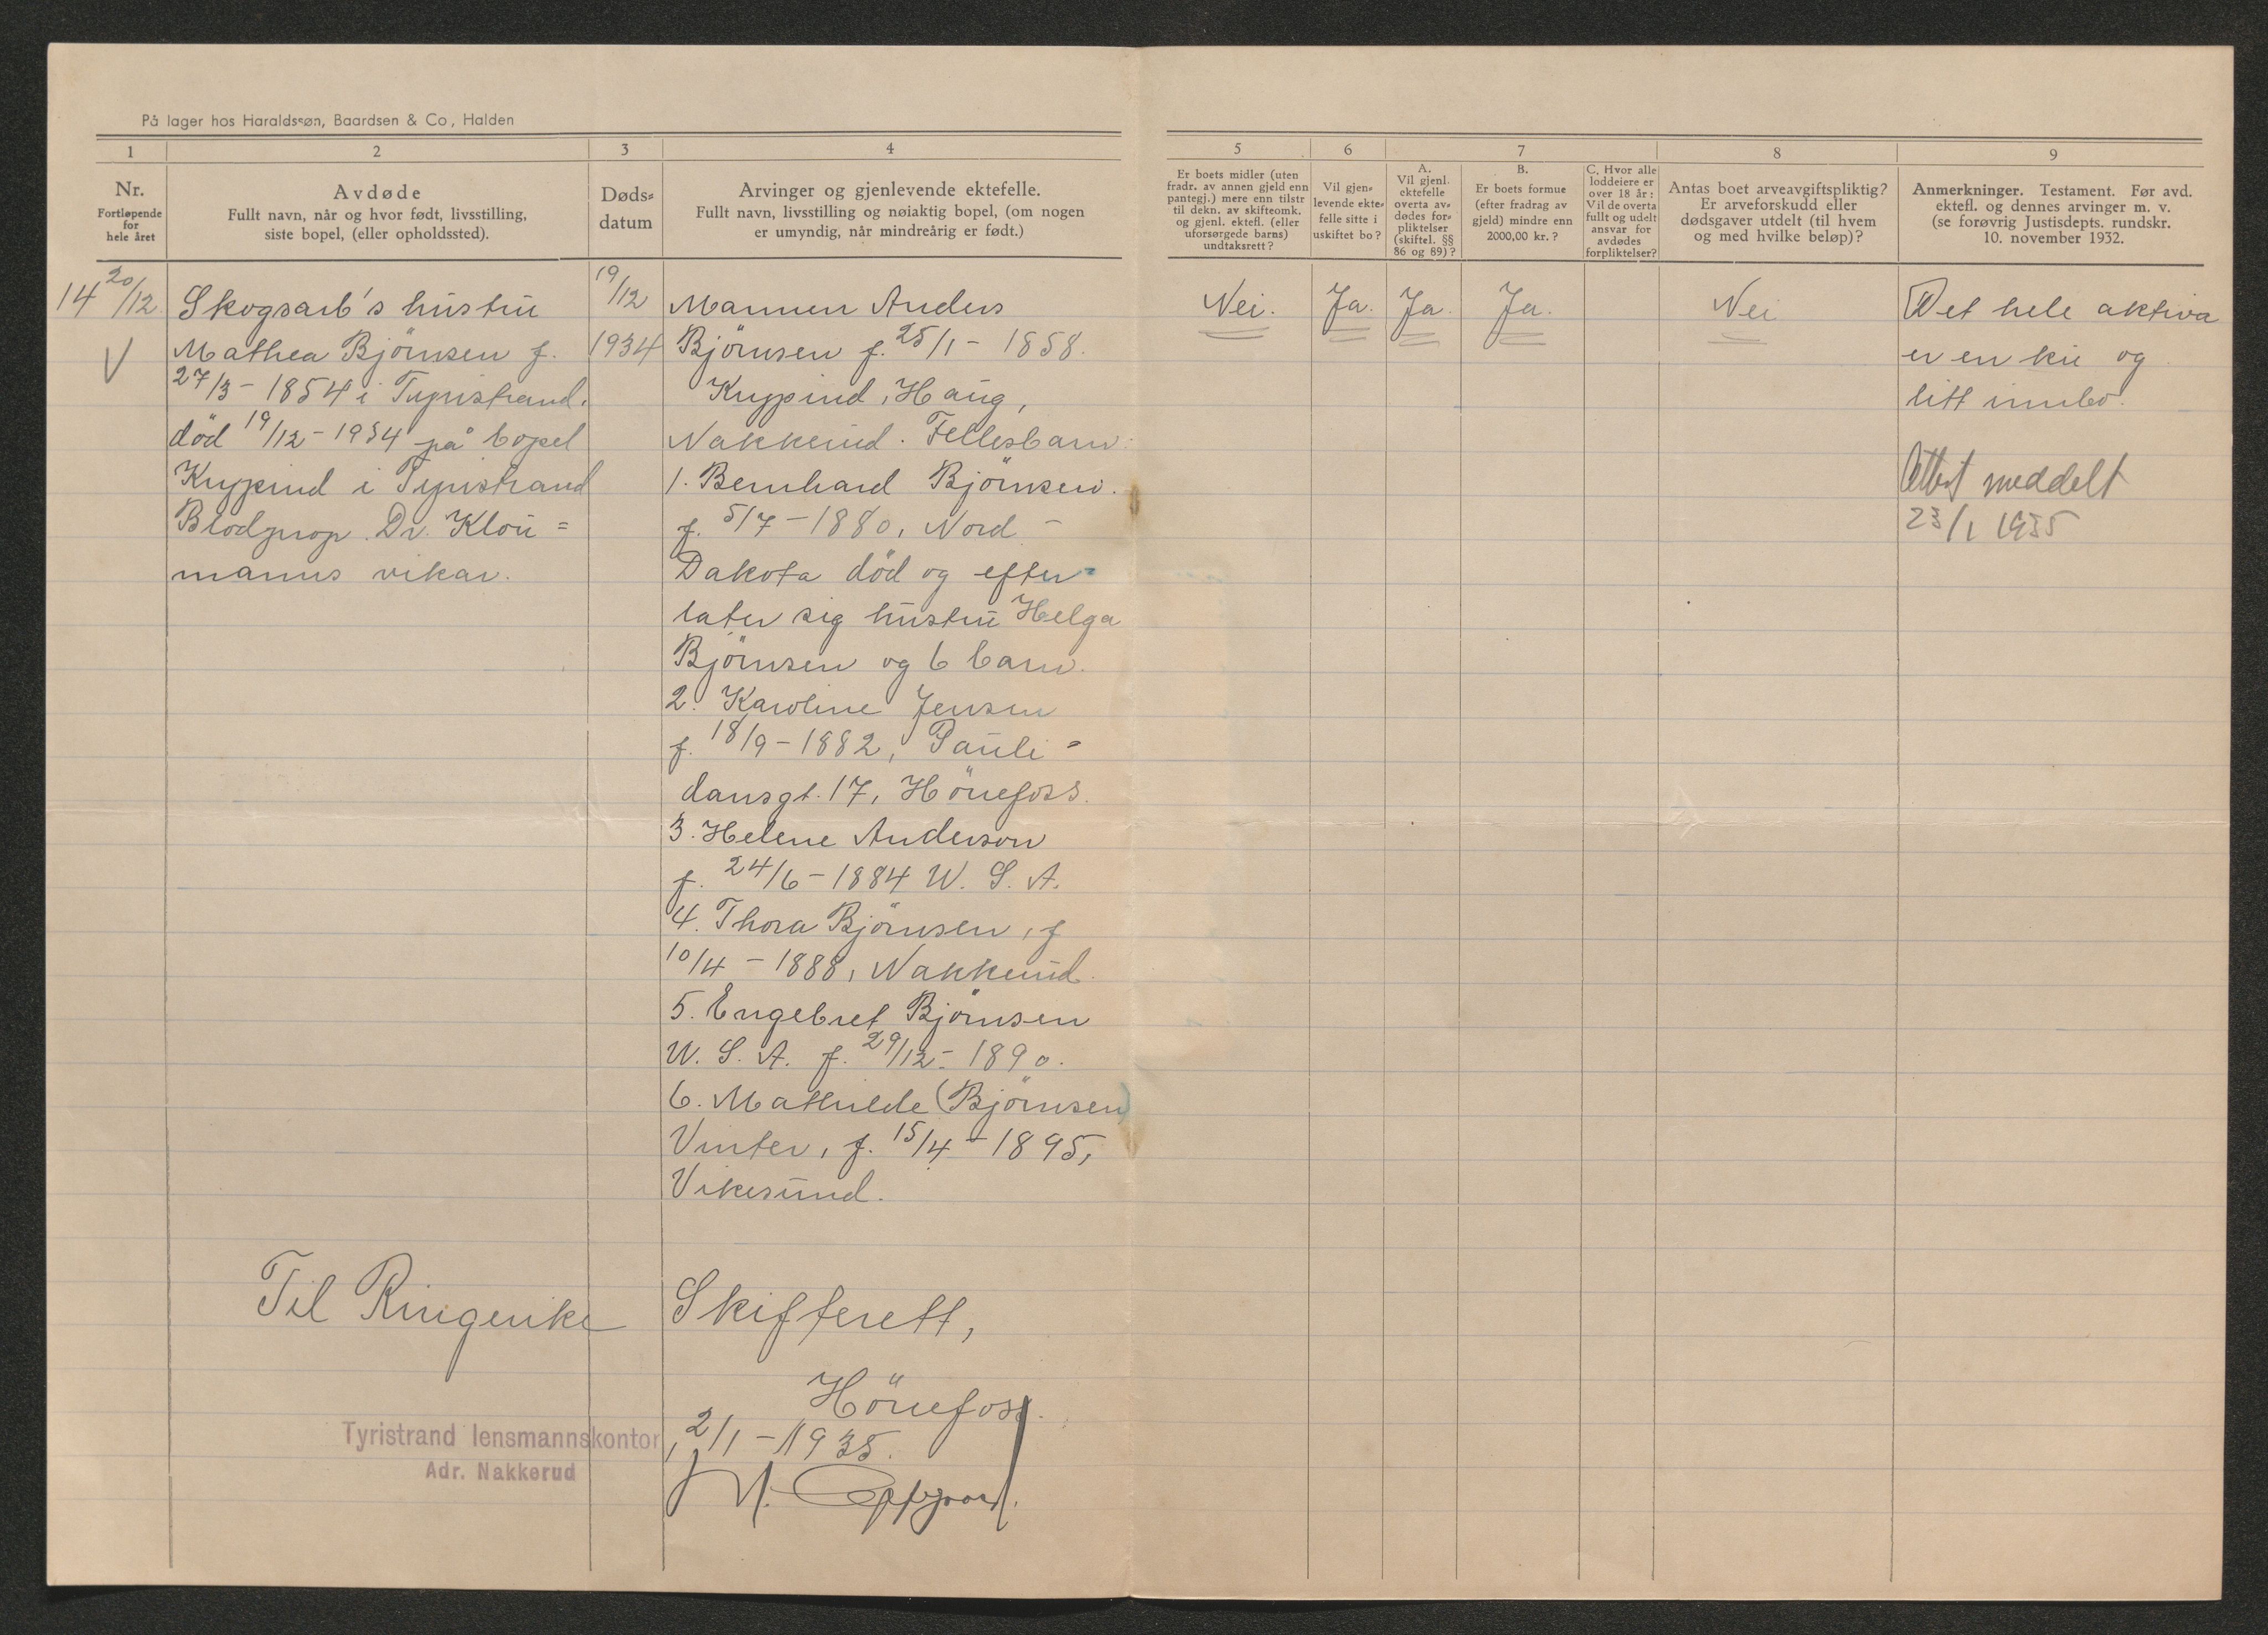 På lager hos Haraldssøn, Baardsen & Co, Halden
1
2
3
4
5
6
7
8
9
Nr.
Fortløpende
for
hele året
Avdøde
Fullt navn, når og hvor født, livsstilling,
siste bopel, (eller opholdssted).
Døds-
datum
Arvinger og gjenlevende ektefelle.
Fullt navn, livsstilling og nøiaktig bopel, (om nogen
er umyndig, når mindreårig er født.)
Er boets midler (uten
fradr. av annen gjeld enn
pantegj.) mere enn tilstr
til dekn. av skifteomk.
og gjenl. ektefl. (eller
uforsørgede barns)
undtaksrett?
Vil gjen-
levende ekte-
felle sitte i
uskiftet bo?
A.
Vil gjenl.
ektefelle
overta av-
dødes for-
pliktelser
(skiftel. §§
86 og 89)?
B.
Er boets formue
(efter fradrag av
gjeld) mindre enn
2000,00 kr.?
C. Hvor alle
loddeiere er
over 18 år:
Vil de overta
fullt og udelt
ansvar for
avdødes
forpliktelser?
Antas boet arveavgiftspliktig?
Er arveforskudd eller
dødsgaver utdelt (til hvem
og med hvilke beløp)?
Anmerkninger. Testament. Før avd.
ektefl. og dennes arvinger m. v.
(se forøvrig Justisdepts. rundskr.
10. november 1932.
14 20/12
Skogsarb's hustru
Mathea Björnsen f.
27/3 - 1854 i Tyristrand,
död 19/12 - 1934 på bopel
Kryperud i Tyristrand
Blodprop. Dr. Klou=
manns vikar.
19/12
1934
Mannen Anders
Björnsen f. 25/1 - 1858.
Kryperud, Haug,
Nakkerud. Fellesbarn:
1. Bernhard Björnsen.
f. 5/7 - 1880, Nord -
Dakota död og efter=
later sig hustru Helga
Björnsen og 6 barn.
2. Karoline Jensen
f. 18/9 - 1882, Pauli=
dansgt. 17, Hönefoss.
3. Helene Anderson
f. 24/6 - 1884 U. S. A.
4. Thora Björnsen, f
10/4 - 1888, Nakkerud.
5. Engebret Björnsen
U. S. A. f. 29/12 - 1890.
6. Mathilde (Björnsen)
Vinter, f. 15/4 - 1895,
Vikersund.
Nei.
Ja.
Ja.
Ja.
Nei
Det hele aktiva
er en ku og
litt innbo.
Attest meddelt
23/1 1935
Til Ringerike Skifterett,
Hönefoss.
Tyristrand lensmannskontor, 2/1 - 1935.
Adr. Nakkerud